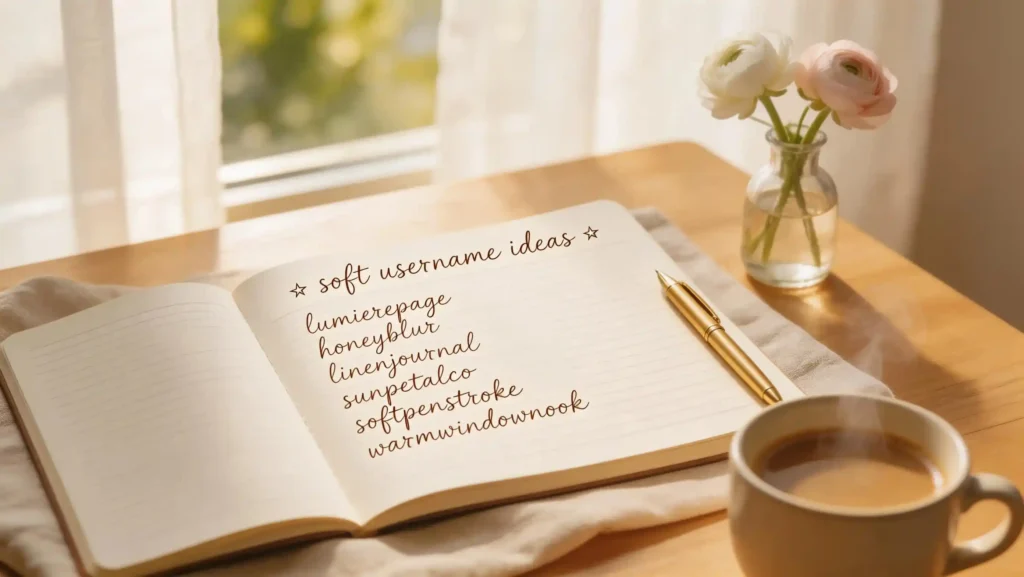 ☆ soft username ideas ☆
lumierepage
honeyblur
linenjournal
sunpetalco
softpenstroke
warmwindownook